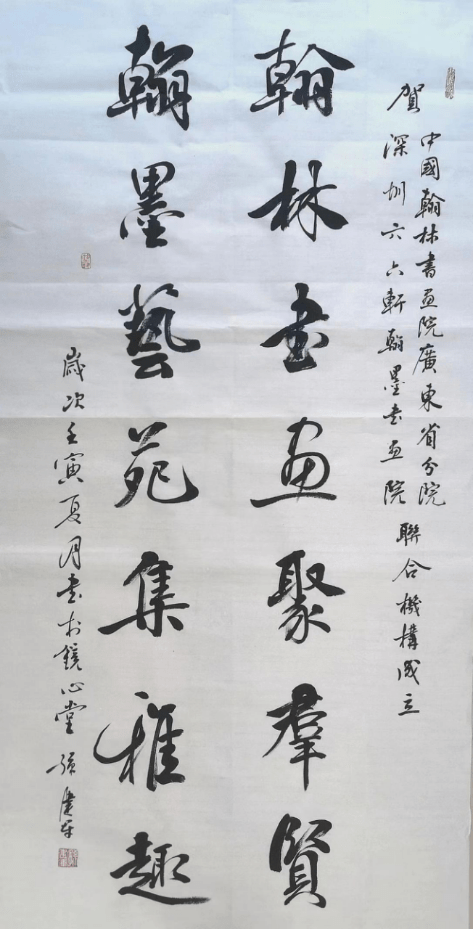 賀
中國翰林書画院廣東省分院
深圳六六軒翰墨书画院
聯合機構成立
翰林书画聚群賢
翰墨藝苑集雅趣
歲次壬寅夏月书於鏡心堂